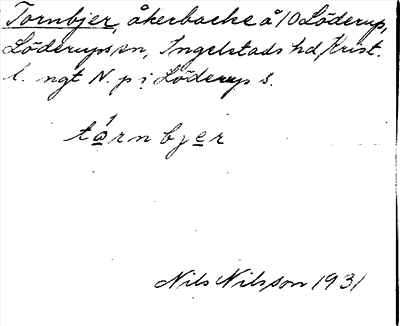 Tornbjer, åkerbacke å 10 Löderup,
Löderups sn, Ingelstads hd, Krist.
l. ngt N. p i Löderup s.
tọ́rnbjer
Nils Nilsson 1931